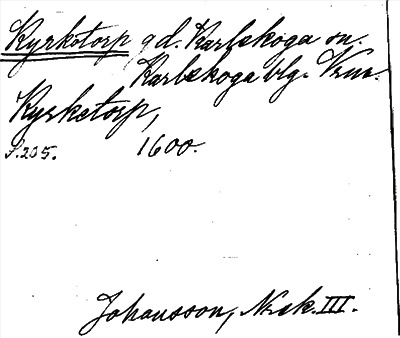 Kyrkotorp gd. Karlskoga sn.
Karlskoga blg. Vrm.
Kyrketorp,
S.205. 1600.
Johansson, Norsk. III.